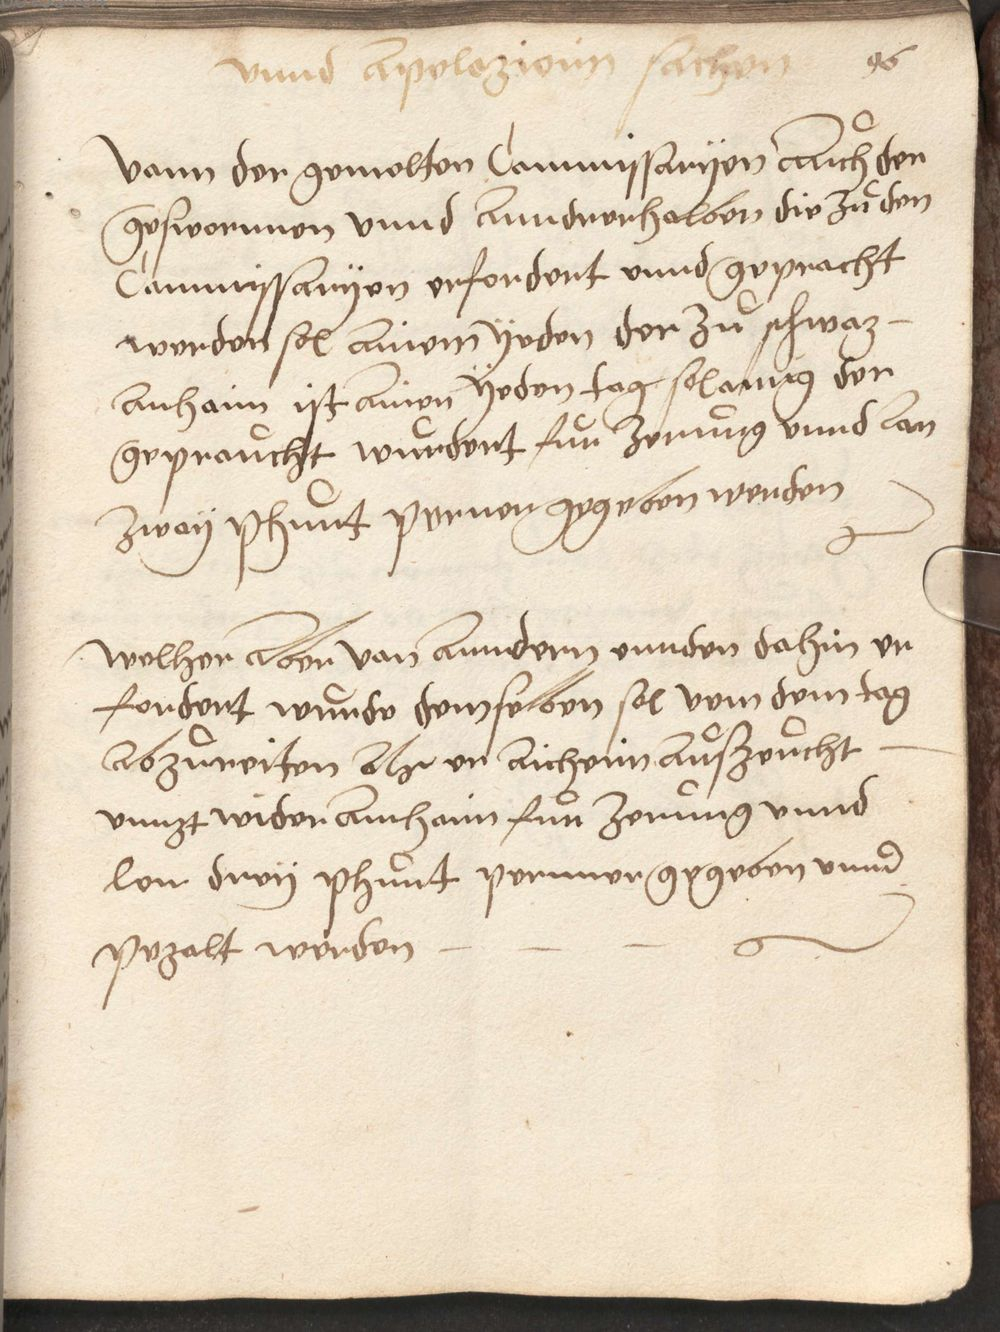 vnnd apelazionn sachen 96
Vonn der gemelten Commissaryen auch der
geswornnen vnnd anndrerhalben die zu den
Commissaryen erfordert vnnd gepracht
werden sol ainem yeden der zu schwaz
anhaim ist ainen yeden tag solanng der
gepraucht wurdert fur zerung vnnd lon
zway phunt perner gegeben werden
Welher aber von anndern ennden dahin er
fordert wurde demselben sol vom dem tag
abzureiten als er aicheim auszeucht
vnnzt wider anhaim fur zerung vnnd
lon drey phunt pernner gegeben vnnd
pezalt werden